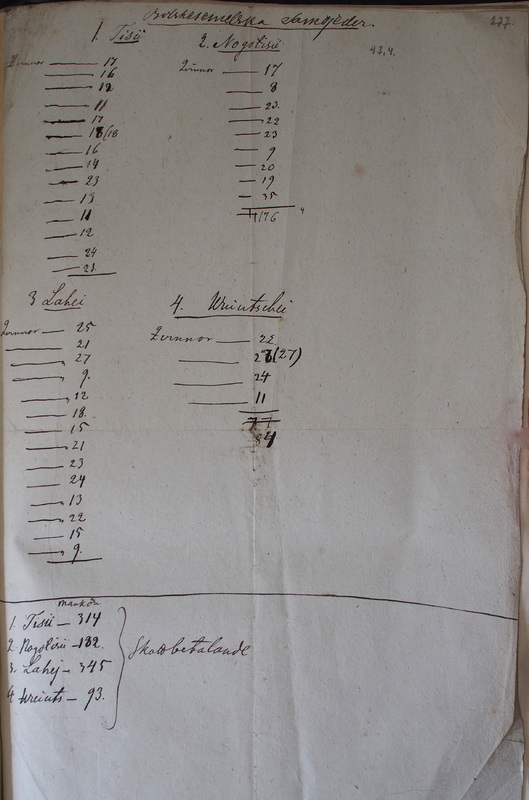 Bolshesemelska Samojeder.
277.
43,4.
1. Tisii
Qvinnor — 17
— 16
— 12
— 11
— 17
— 18(18
— 16
— 14
— 23
— 13
— 11
— 12
— 24
— 21.
2. Nogotisii
Qvinnor — 17
— 8
— 23.
— 22
— 23
— 9
— 20
— 19
— 35
176
3 Lahei
Qvinnor — 25
— 21
— 27
— 9.
— 12
— 18.
— 15
— 21
— 23
— 24
— 13
— 22
— 15
— 9.
4. Uciutschei
Qvinnor — 22
— 26(27)
— 24
— 11
77
84
mankön
1. Tisii — 314
2. Nogotisii — 182.
3. Lahej — 345
4 — 93.
Skattbetalande